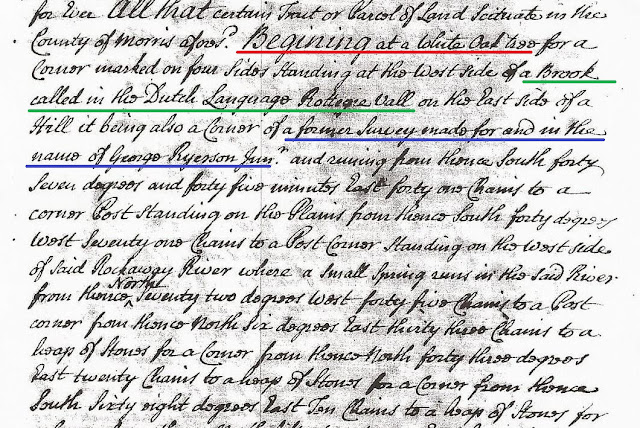 for Ever All that certain Tract or Parcel of Land Scituate in the
County of Morris afores.d Begining at a White Oak Tree for a
Corner marked on four Sides Standing at the West Side of a Brook
called in the Dutch Language Vall on the East Side of a
Hill it being also a Corner of a former Survey made for and in the
name of George Ryerson Jun.r and runing from thence South forty
Seven degrees and forty five minutes East forty one Chains to a
corner Post Standing on the Plains from thence South forty degrees
West Seventy one Chains to a Post Corner Standing on the West side
of Said Rockaway River where a Small Spring runs in the Said River
from thence North Seventy two degrees West forty five Chains to a Post
corner from thence North Six degrees East thirty three Chains to a
heap of Stones for a Corner from thence North forty three degrees
East twenty Chains to a heap of Stones for a Corner from thence
South Sixty eight degrees East Ten Chains to a heap of Stones for